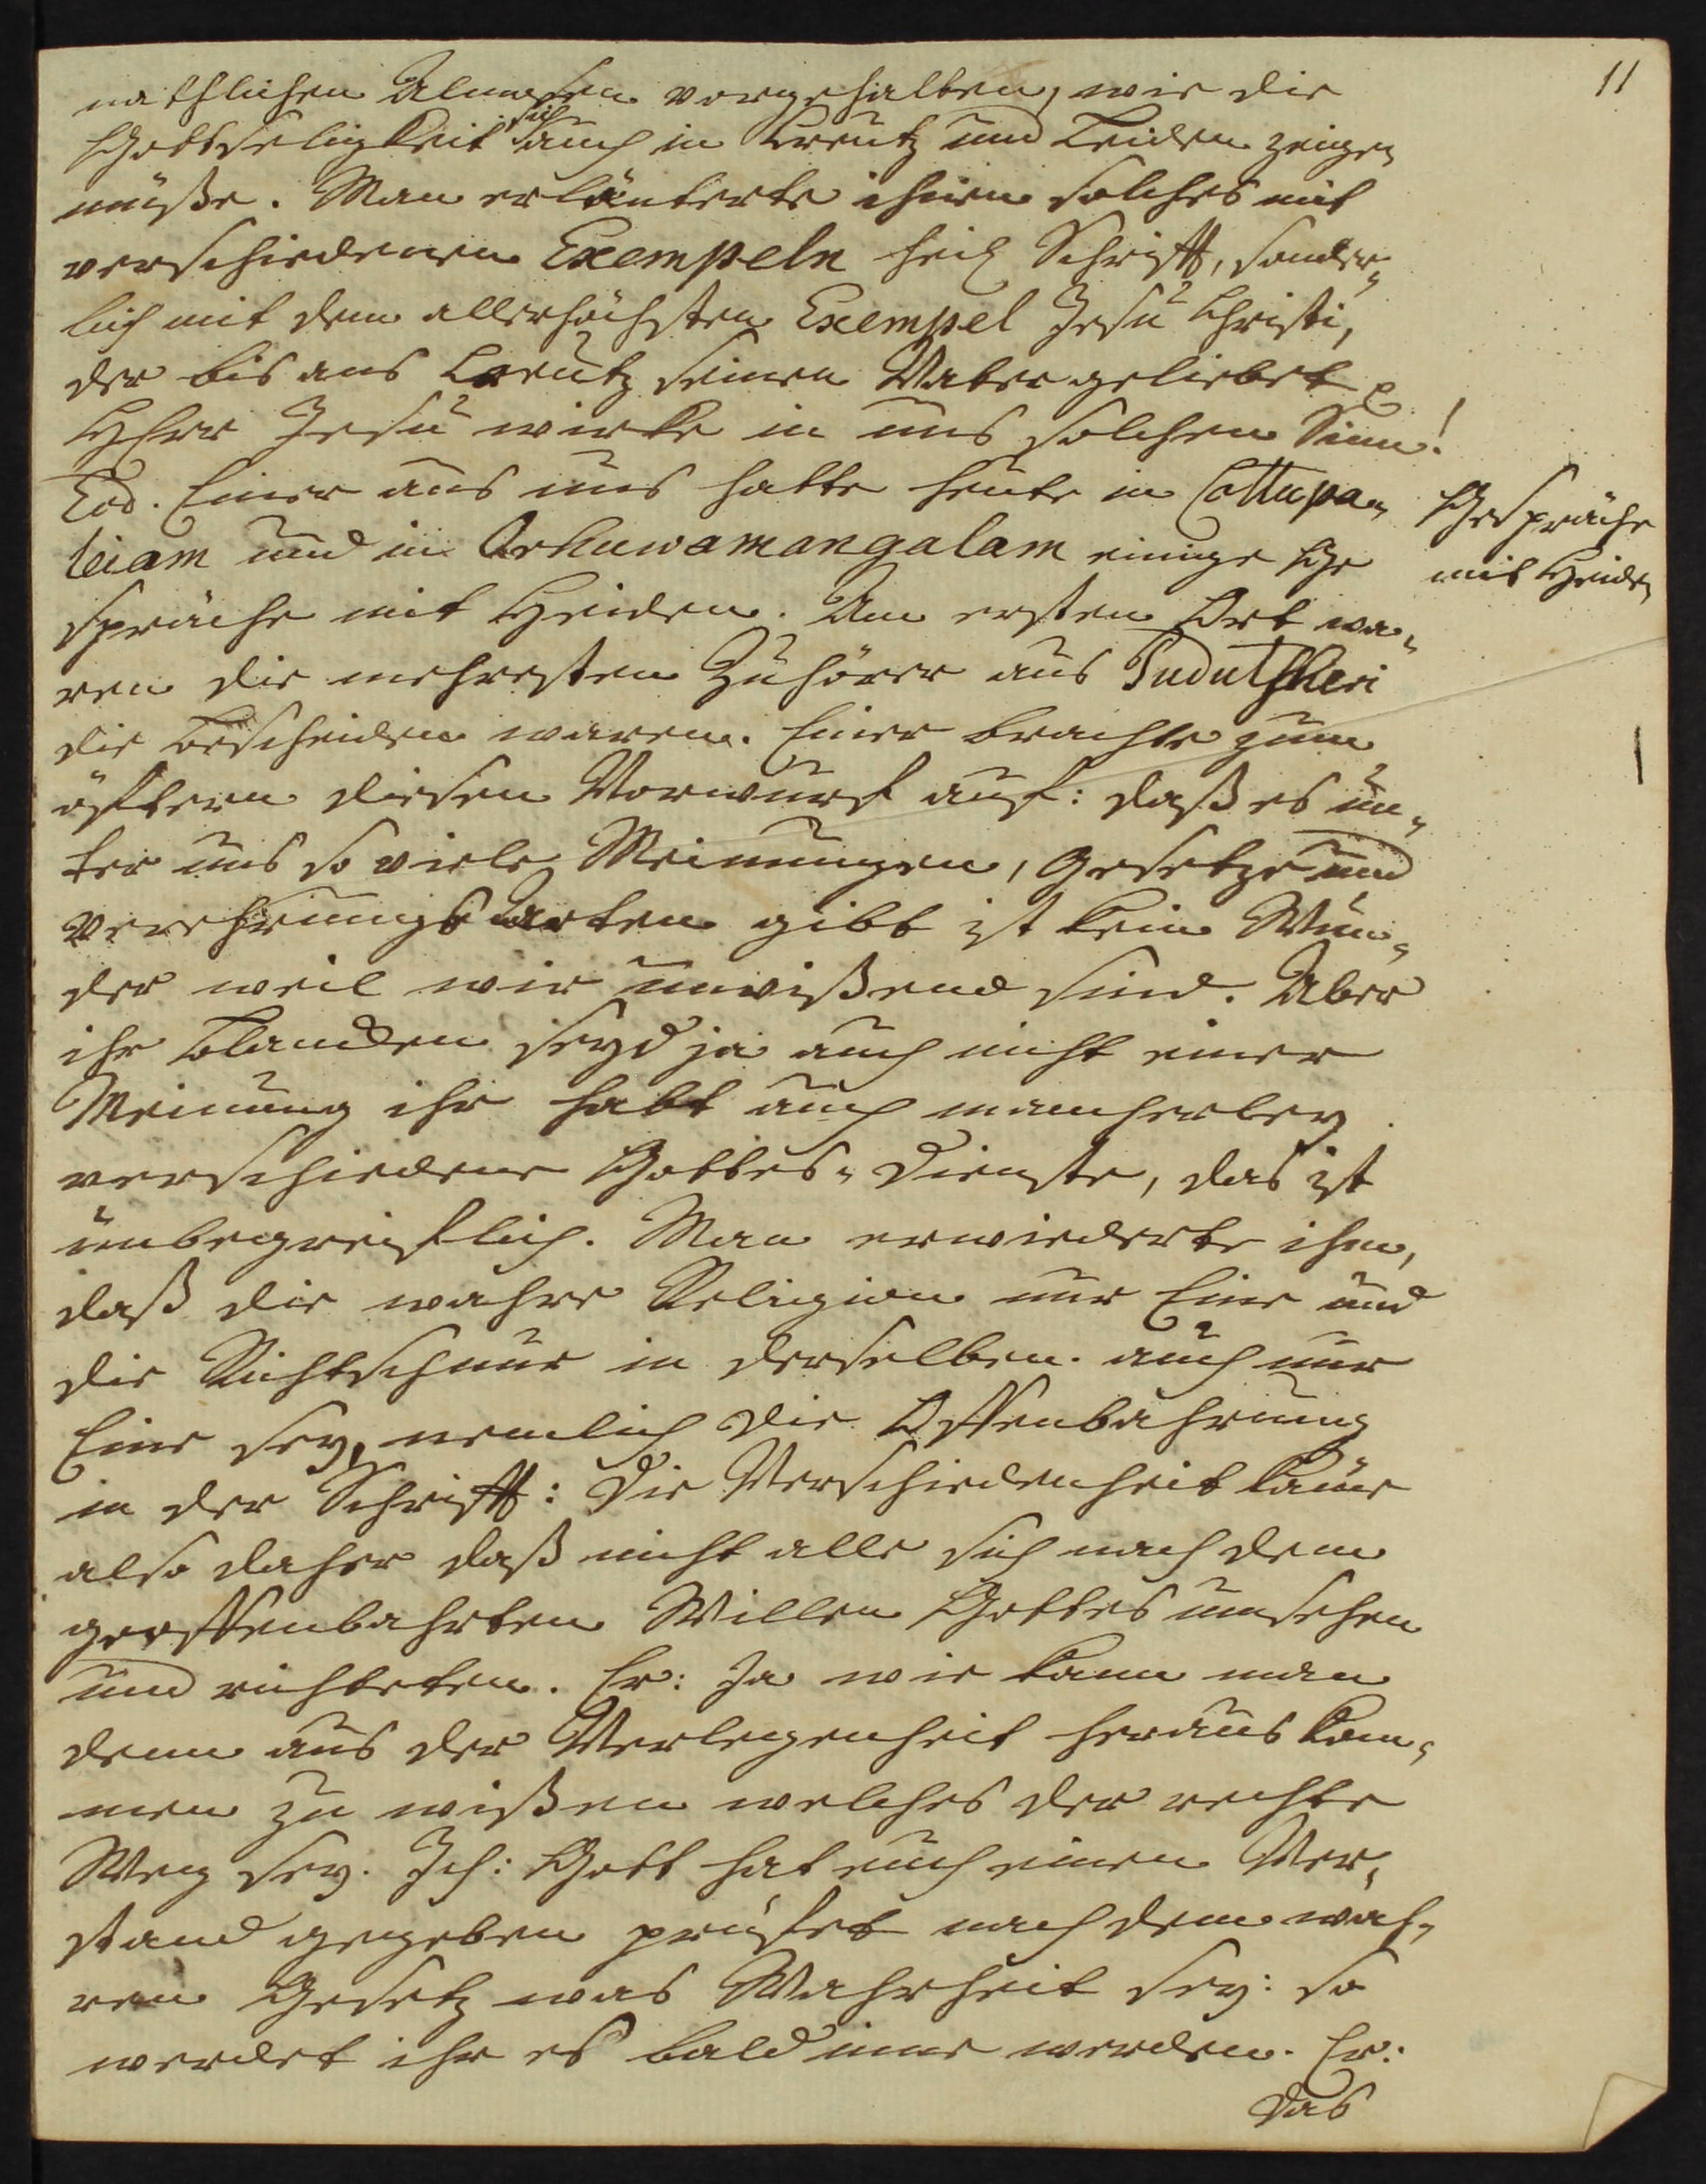 11
nathlichen Almosen vorgehalten, wie die
Gottseligkeit sich auch in Creutz und Leiden zeigen
müße. Man erläuterte ihnen solches mit
verschiedenen Exempeln heil Schrifft, sonder„
lich mit dem allerhöchsten Exempel Jesu Christi,
der bis ans Creutz seinen Vater geliebet
HErr Jesu wirke in uns solchen Sinn!
Eod. Einer aus uns hatte heute in Cottupa„
leiam und in Orkuwamangalam einige Ge
spräche mit Heiden. Am ersten Ort wa„
ren die mehresten Zuhörer aus Pudutscheri
die bescheiden waren. Einer brachte zum
öfftern diesen Vorwurf auf: daß es un„
ter uns so viele Meinungen, Gesetze und
Verehrungs arten gibt ist kein Wun„
der weil wir unwißend sind. Aber
ihr Blanden seyd ja auch nicht einer
Meinung ihr habt auch mancherley
verschiedene Gottes„ Dienste, das ist
unbegreiflich. Man erwiederte ihm,
daß die wahre Religion nur Eine und
die Richtschnur in derselben auch nur
Eine sey, nemlich die Offenbahrung
in der Schrifft: Die Verschiedenheit käme
also daher daß nicht alle sich nach dem
geoffenbahrten Willen Gottes umsehen
und richteten. Er: Ja wie kann man
denn aus der Verlegenheit heraus kom„
men zu wißen welches der rechte
Weg sey. Ich: Gott hat euch einen Ver„
stand gegeben prüfet nach dem wah„
ren Gesetz was Wahrheit sey: so
werdet ihr es bald inne werden. Er:
das
Gespräche
mit Heiden